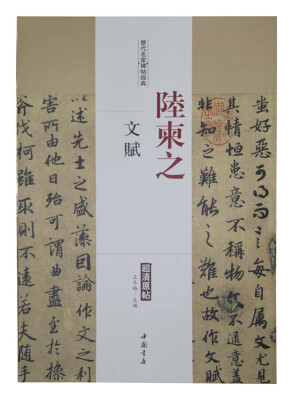 歷代名家碑帖經典
陸柬之
文賦
超清原帖
王冬梅·主編
中國書店
蚩好惡可得而言每自属文尤見
其情恒患意不稱物文不逮意蓋
非知之難能之難也故作文賦
以述先士之盛藻因論作文之利
害所由他日殆可謂曲盡至於操
斧伐柯雖取則不遠若夫隨手